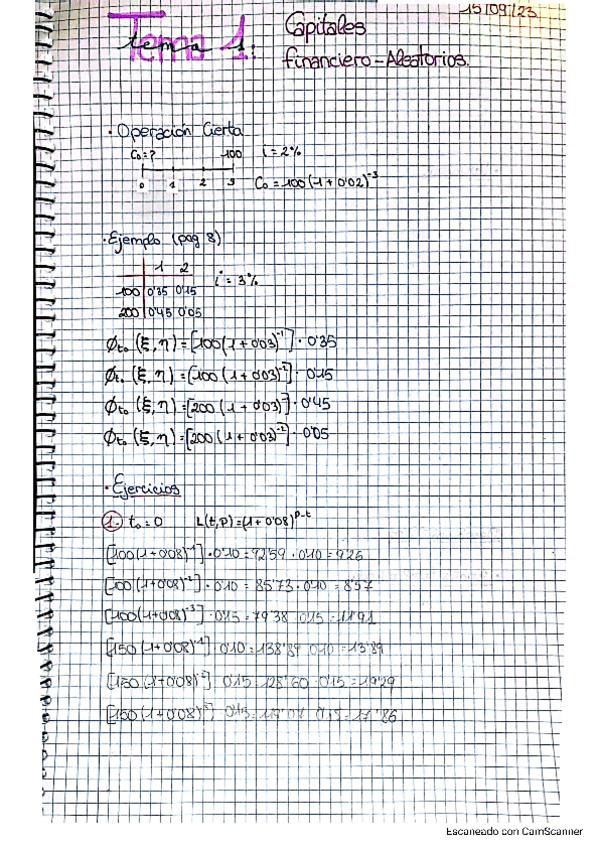 15/09/23
Tema 1: Capitales
Financiero-Aleatorios.
· Operación Cierta
C₀=? 100 i=2%
0 1 2 3 C₀=100(1+0'02)⁻³
· Ejemplo (pag 8)
1 2
100 0'35 0'15 i=3%
200 0'45 0'05
ϕt₀ (ξ,η)=[100(1+0'03)⁻¹]·0'35
ϕt₀ (ξ,η)=[100(1+0'03)⁻²]·0'15
ϕt₀ (ξ,η)=[200(1+0'03)⁻¹]·0'45
ϕt₀ (ξ,η)=[200(1+0'03)⁻²]·0'05
· Ejercicios
1. t₀=0 L(t,p)=(1+0'08)ᵖ⁻ᵗ
[100(1+0'08)⁻¹]·0'10=92'59·0'10=9'26
[100(1+0'08)⁻²]·0'10=85'73·0'10=8'57
[100(1+0'08)⁻³]·0'15=79'38·0'15=11'91
[150(1+0'08)⁻¹]·0'10=138'89·0'10=13'89
[150(1+0'08)⁻²]·0'15=128'60·0'15=19'29
[150(1+0'08)⁻³] =17'86
Escaneado con CamScanner